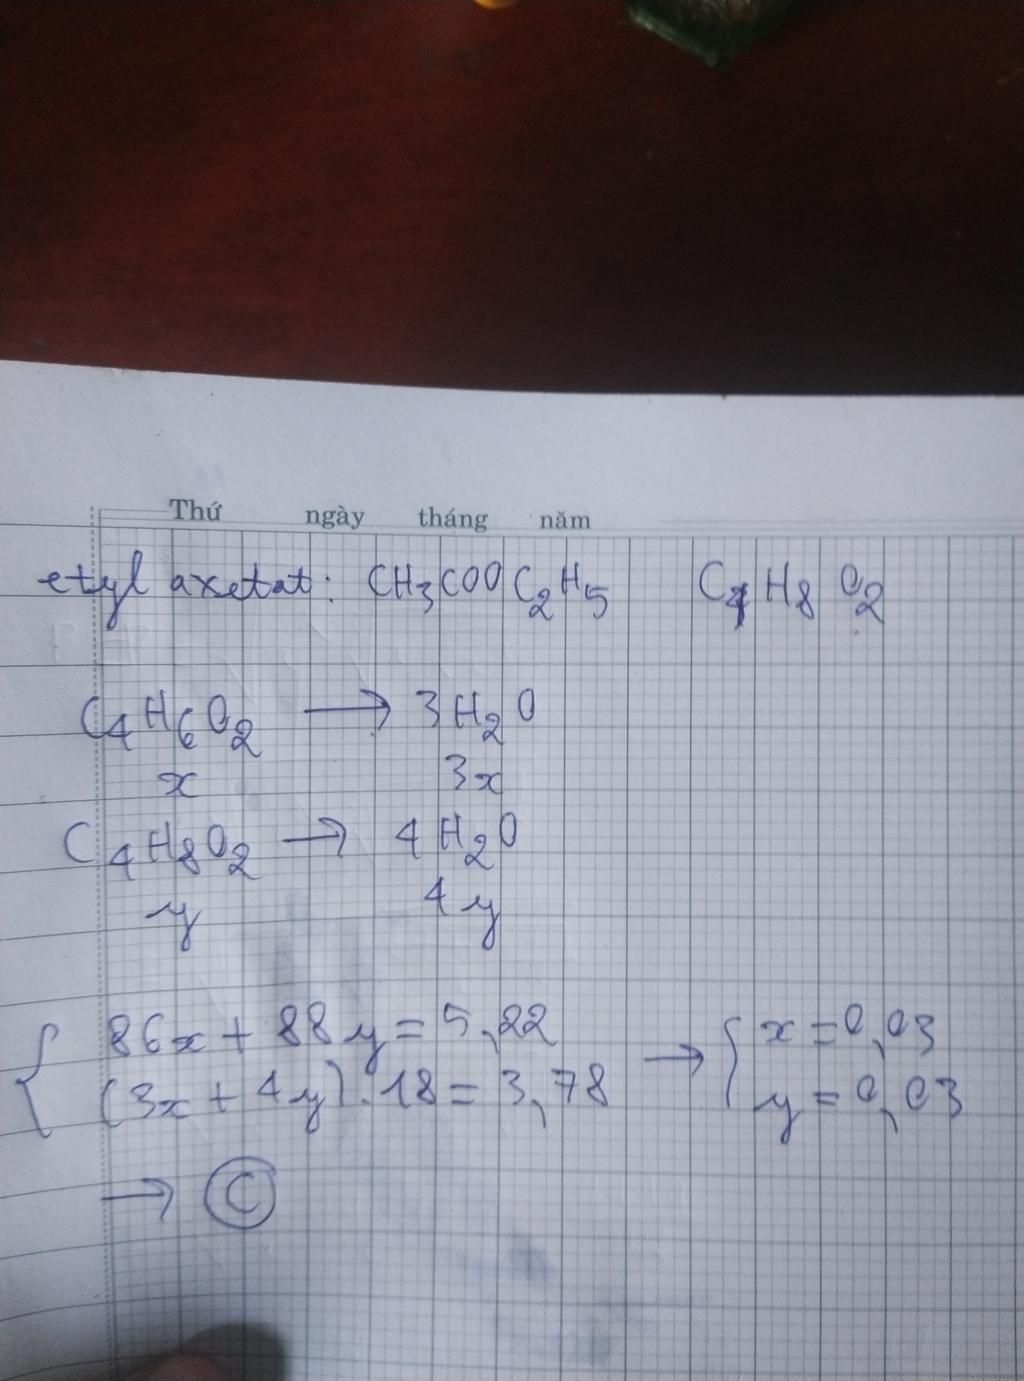 Thứ ngày tháng năm
etyl axetat: CH3COOC2H5 C4H8O2
C4H6O2 → 3H2O
x 3x
C4H8O2 → 4H2O
y 4y
{ 86x + 88y = 5,22 → { x = 0,03
(3x + 4y).18 = 3,78 y = 0,03
→ C